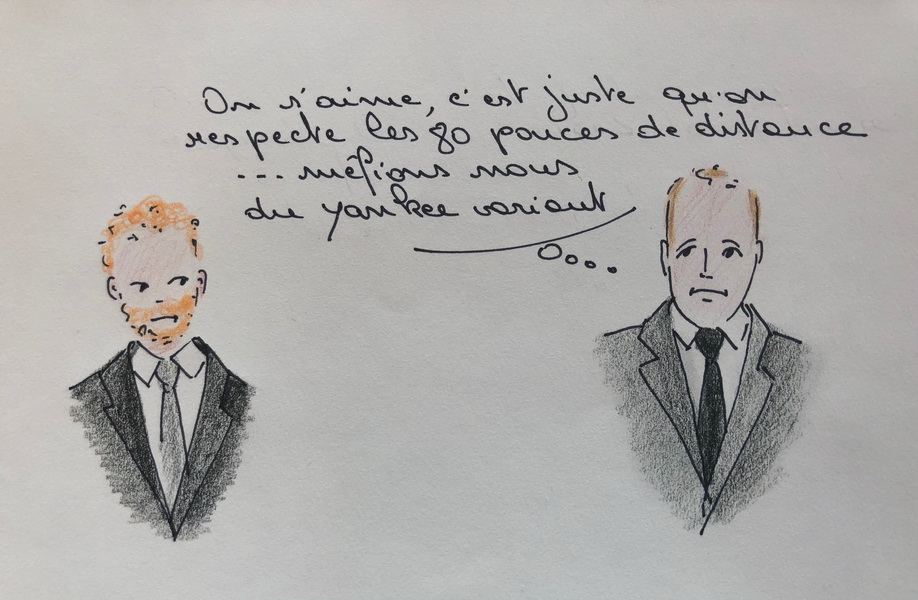 On s'aime, c'est juste qu'on
respecte les 80 pouces de distance
... méfions nous
du yankee variant